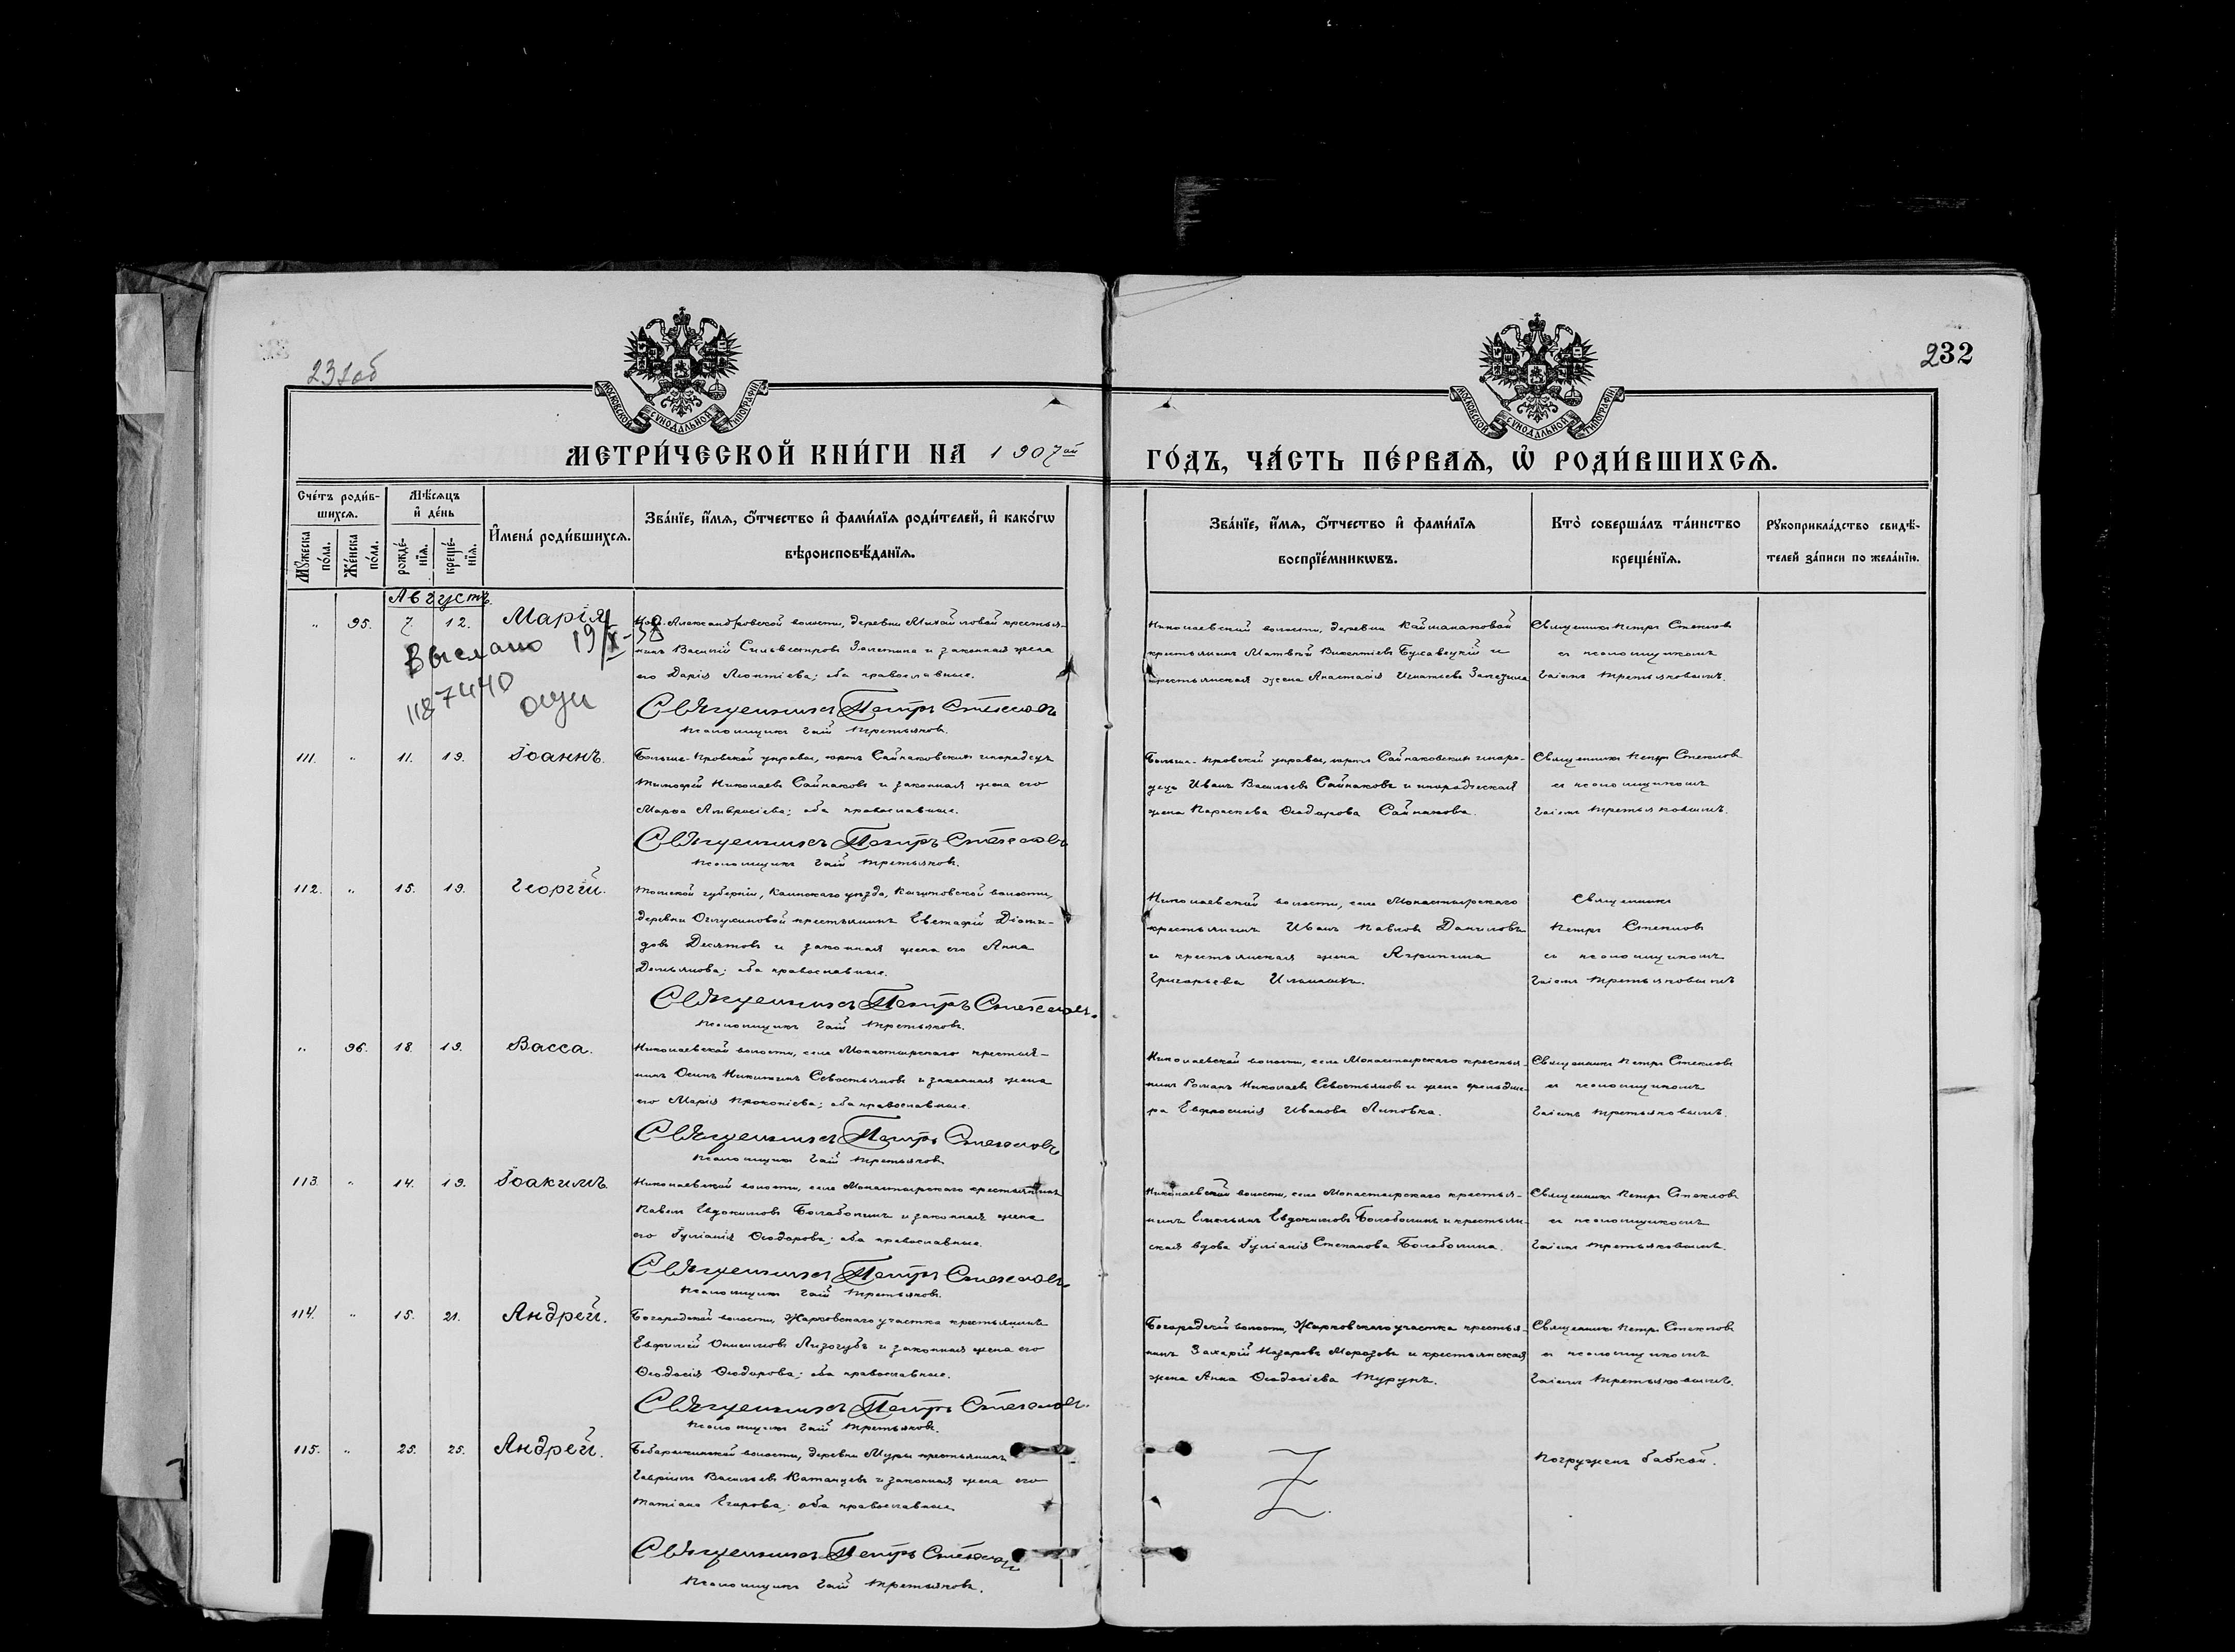 231об
232
МОСКОВСКОЙ СѴНОДАЛЬНОЙ ТИПОГРАФІИ
МОСКОВСКОЙ СѴНОДАЛЬНОЙ ТИПОГРАФІИ
МЕТРИ́ЧЕСКОЙ КНИ́ГИ НА 1907ой
ГО́ДЪ, ЧА́СТЬ ПЕ́РВАѦ, Ѡ҆ РОДИ́ВШИХСѦ.
Сче́тъ роди́в-
шихсѧ.
Мѣ́сѧцъ
и҆ де́нь
Мꙋ́жеска
по́ла.
Же́нска
по́ла.
рожде́-
нїѧ.
креще́-
нїѧ.
И҆мена́ роди́вшихсѧ.
Зва́нїе, и҆́мѧ, ѻ҆́тчество и҆ фами́лїѧ роди́телей, и҆ како́гѡ
вѣроисповѣ́данїѧ.
Зва́нїе, и҆́мѧ, ѻ҆́тчество и҆ фами́лїѧ
воспрїе́мникѡвъ.
Кто̀ соверша́лъ та́инство
креще́нїѧ.
Рꙋкоприкла́дство свидѣ́-
телей за́писи по жела́нїю.
Августъ.
„ 95. 7. 12. Марія
Ново-Александровской волости, деревни Михайловой крестья-
нинъ Василій Сильвестровъ Залетина и законная жена
его Дарія Леонтіева; оба православные.
Священникъ Петръ Стеклов
Псаломщикъ Гаій Третьяков.
Выслано 19/X-38
1187440
Николаевской волости, деревни Кайманаковой
крестьянинъ Матвѣй Викентіевъ Букавецкій и
крестьянская жена Анастасія Игнатьева
Священникъ Петръ Стеклов
съ псаломщикомъ
Гаіемъ Третьяковымъ.
111. „ 11. 19. Іоаннъ.
управы, юртъ Саймаковскихъ инородецъ
Тимофей Николаевъ Саймаковъ и законная жена его
Марѳа Амвросіева; оба православные.
Священникъ Петръ Стеклов
Псаломщикъ Гаій Третьяков.
управы, юртъ Саймаковскихъ иноро-
децъ Иванъ Васильевъ Саймаковъ и инородческая
жена Параскева Ѳеодорова Саймакова.
Священникъ Петръ Стеклов
съ псаломщикомъ
Гаіемъ Третьяковымъ.
112. „ 15. 19. Георгій.
Томской губерніи, Каинскаго уѣзда, волости,
деревни крестьянинъ Евстафій Діоми-
довъ Десятовъ и законная жена его Анна
Демьянова; оба православные.
Священникъ Петръ Стеклов.
Псаломщикъ Гаій Третьяков.
Николаевской волости, села Монастырскаго
крестьянинъ Иванъ Павловъ Даниловъ
и крестьянская жена Агрипина
Григорьева
Священникъ
Петръ Стеклов
съ псаломщикомъ
Гаіемъ Третьяковымъ
„ 96. 18. 19. Васса.
Николаевской волости, села Монастырскаго крестья-
нинъ Осипъ Никитинъ Севостьянов и законная жена
его Марія Прокопіева; оба православные.
Священникъ Петръ Стеклов
Псаломщикъ Гаій Третьяков
Николаевской волости, села Монастырскаго крестья-
нинъ Романъ Николаевъ Севостьянов и жена фельдше-
ра Евфросинія Иванова Липовка.
Священникъ Петръ Стеклов
съ псаломщикомъ
Гаіемъ Третьяковымъ.
113. „ 14. 19. Іоакимъ.
Николаевской волости, села Монастырскаго крестьянинъ
Павелъ Евдокимовъ Болаболинъ и законная жена
его Іуліанія Ѳеодорова; оба православные.
Священникъ Петръ Стеклов
Псаломщикъ Гаій Третьяков.
Николаевской волости, села Монастырскаго крестья-
нинъ Емельянъ Евдокимовъ Болаболинъ и крестьян-
ская вдова Іуліанія Степанова Болаболина.
Священникъ Петръ Стеклов
съ псаломщикомъ
Гаіемъ Третьяковымъ.
114. „ 15. 21. Андрей.
Богородской волости, Жарковскаго участка крестьянинъ
Евфимій Онисимовъ Лизогубъ и законная жена его
Ѳеодосія Ѳеодорова; оба православные.
Священникъ Петръ Стеклов.
Псаломщикъ Гаій Третьяков.
Богородской волости, Жарковскаго участка крестья-
нинъ Захарій Назаровъ Морозовъ и крестьянская
жена Анна Ѳеодосіева Турунъ.
Священникъ Петръ Стеклов
съ псаломщикомъ
Гаіемъ Третьяковымъ.
115. „ 25. 25. Андрей.
Бабарыкинской волости, деревни Муры крестьянинъ
Гавріилъ Васильевъ Катанцевъ и законная жена его
Татіана Егорова; оба православные
Священникъ Петръ Стеклов
Псаломщикъ Гаій Третьяков.
Z.
Погруженъ бабкой.